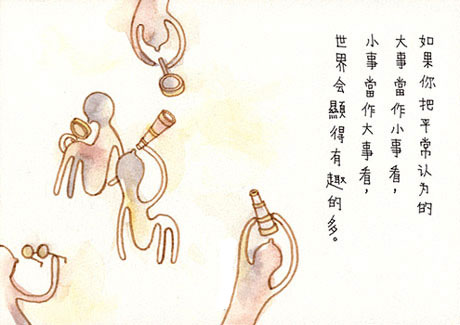 如果你把平常认为的
大事當作小事看，
小事當作大事看，
世界会顯得有趣的多。